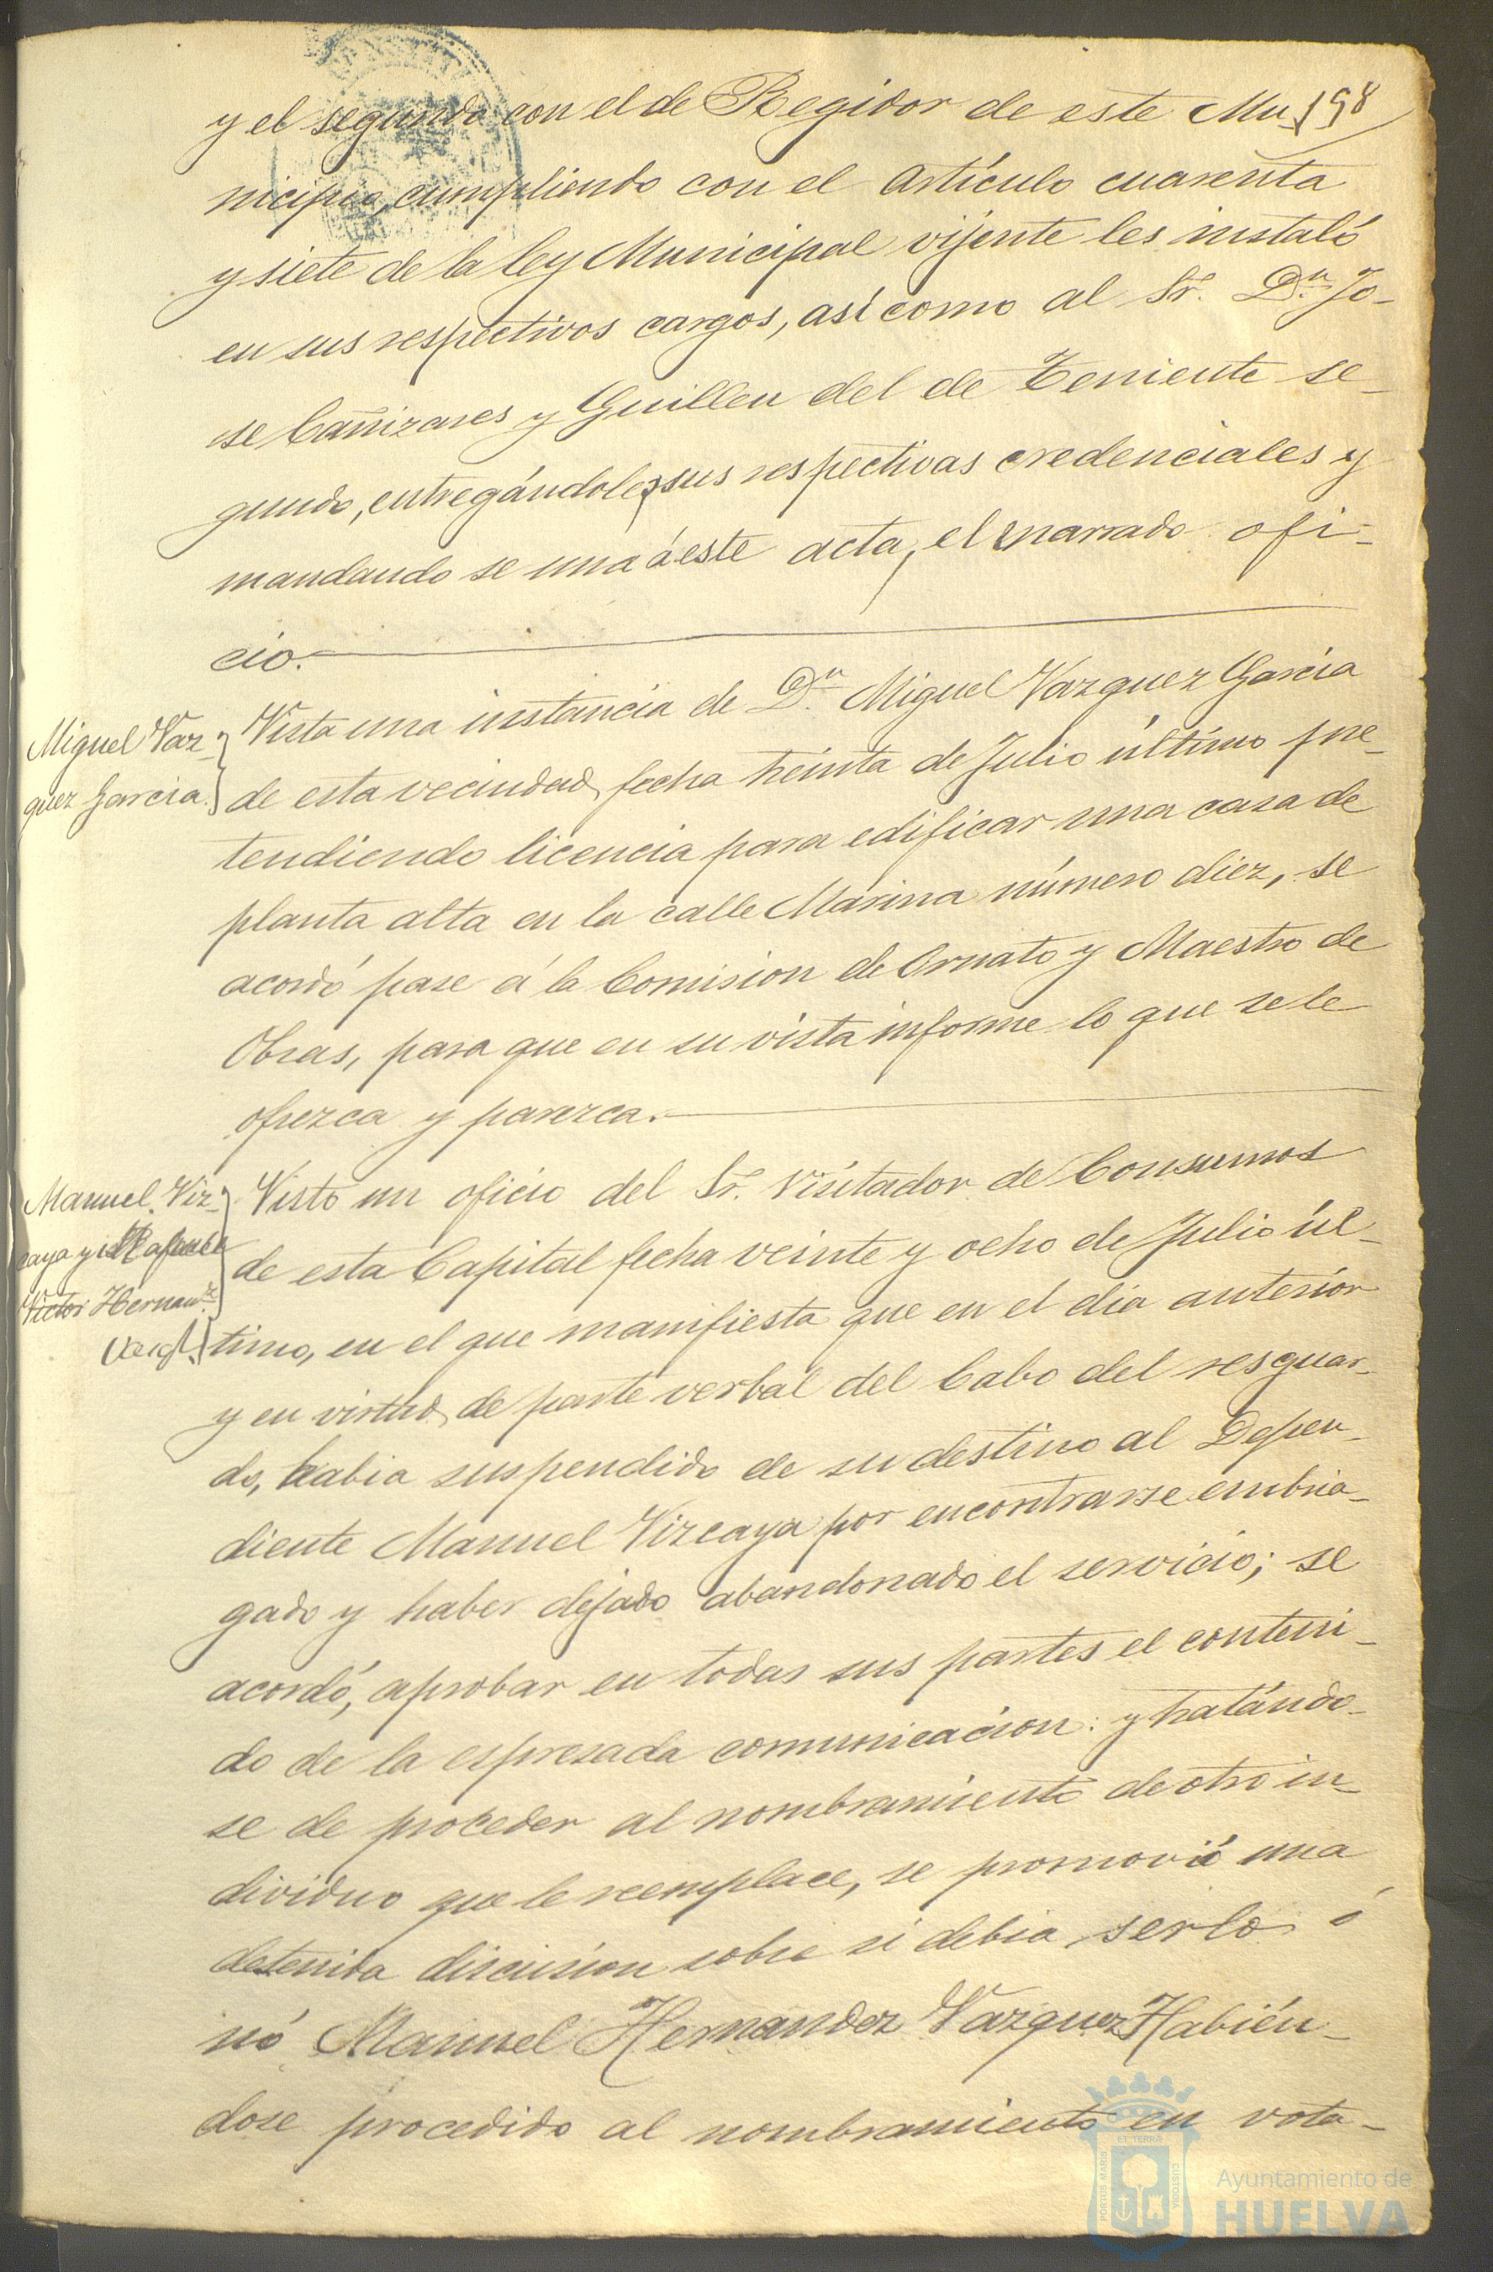 198
y el segundo con el de Regidor de este Mu-
nicipio, cumpliendo con el artículo cuarenta
y siete de la ley Municipal vijente les instaló
en sus respectivos cargos, así como al Sr. Dn. Jo-
se Cañizares y Guillen del de Teniente se-
gundo, entregándoles sus respectivas credenciales y
mandando se una á este acta, el narrado ofi-
cio.
Miguel Vaz-
quez Garcia.
Vista una instancia de Dn. Miguel Vazquez Garcia
de esta vecindad, fecha treinta de Julio último pre-
tendiendo licencia para edificar una casa de
planta alta en la calle Marina número diez, se
acordó pase á la Comision de Ornato y Maestro de
Obras, para que en su vista informe lo que se le
ofrezca y parezca.
Manuel Viz-
caya y
Victor Hernanz
Visto un oficio del Sr. Visitador de Consumos
de esta Capital fecha veinte y ocho de Julio úl-
timo, en el que manifiesta que en el dia anterior
y en virtud de parte verbal del Cabo del resguar-
do, habia suspendido de su destino al Depen-
diente Manuel Vizcaya por encontrarse embria-
gado y haber dejado abandonado el servicio; se
acordó, aprobar en todas sus partes el conteni-
do de la espresada comunicacion: y tratándo-
se de proceder al nombramiento de otro in-
dividuo que le reemplace, se promovió una
detenida discusion sobre si debia serlo ó
nó Manuel Hernandez Vazquez Habién-
dose procedido al nombramiento en vota-
PORTUS MARIS
ET TERRÆ
CUSTODIA
Ayuntamiento de
HUELVA